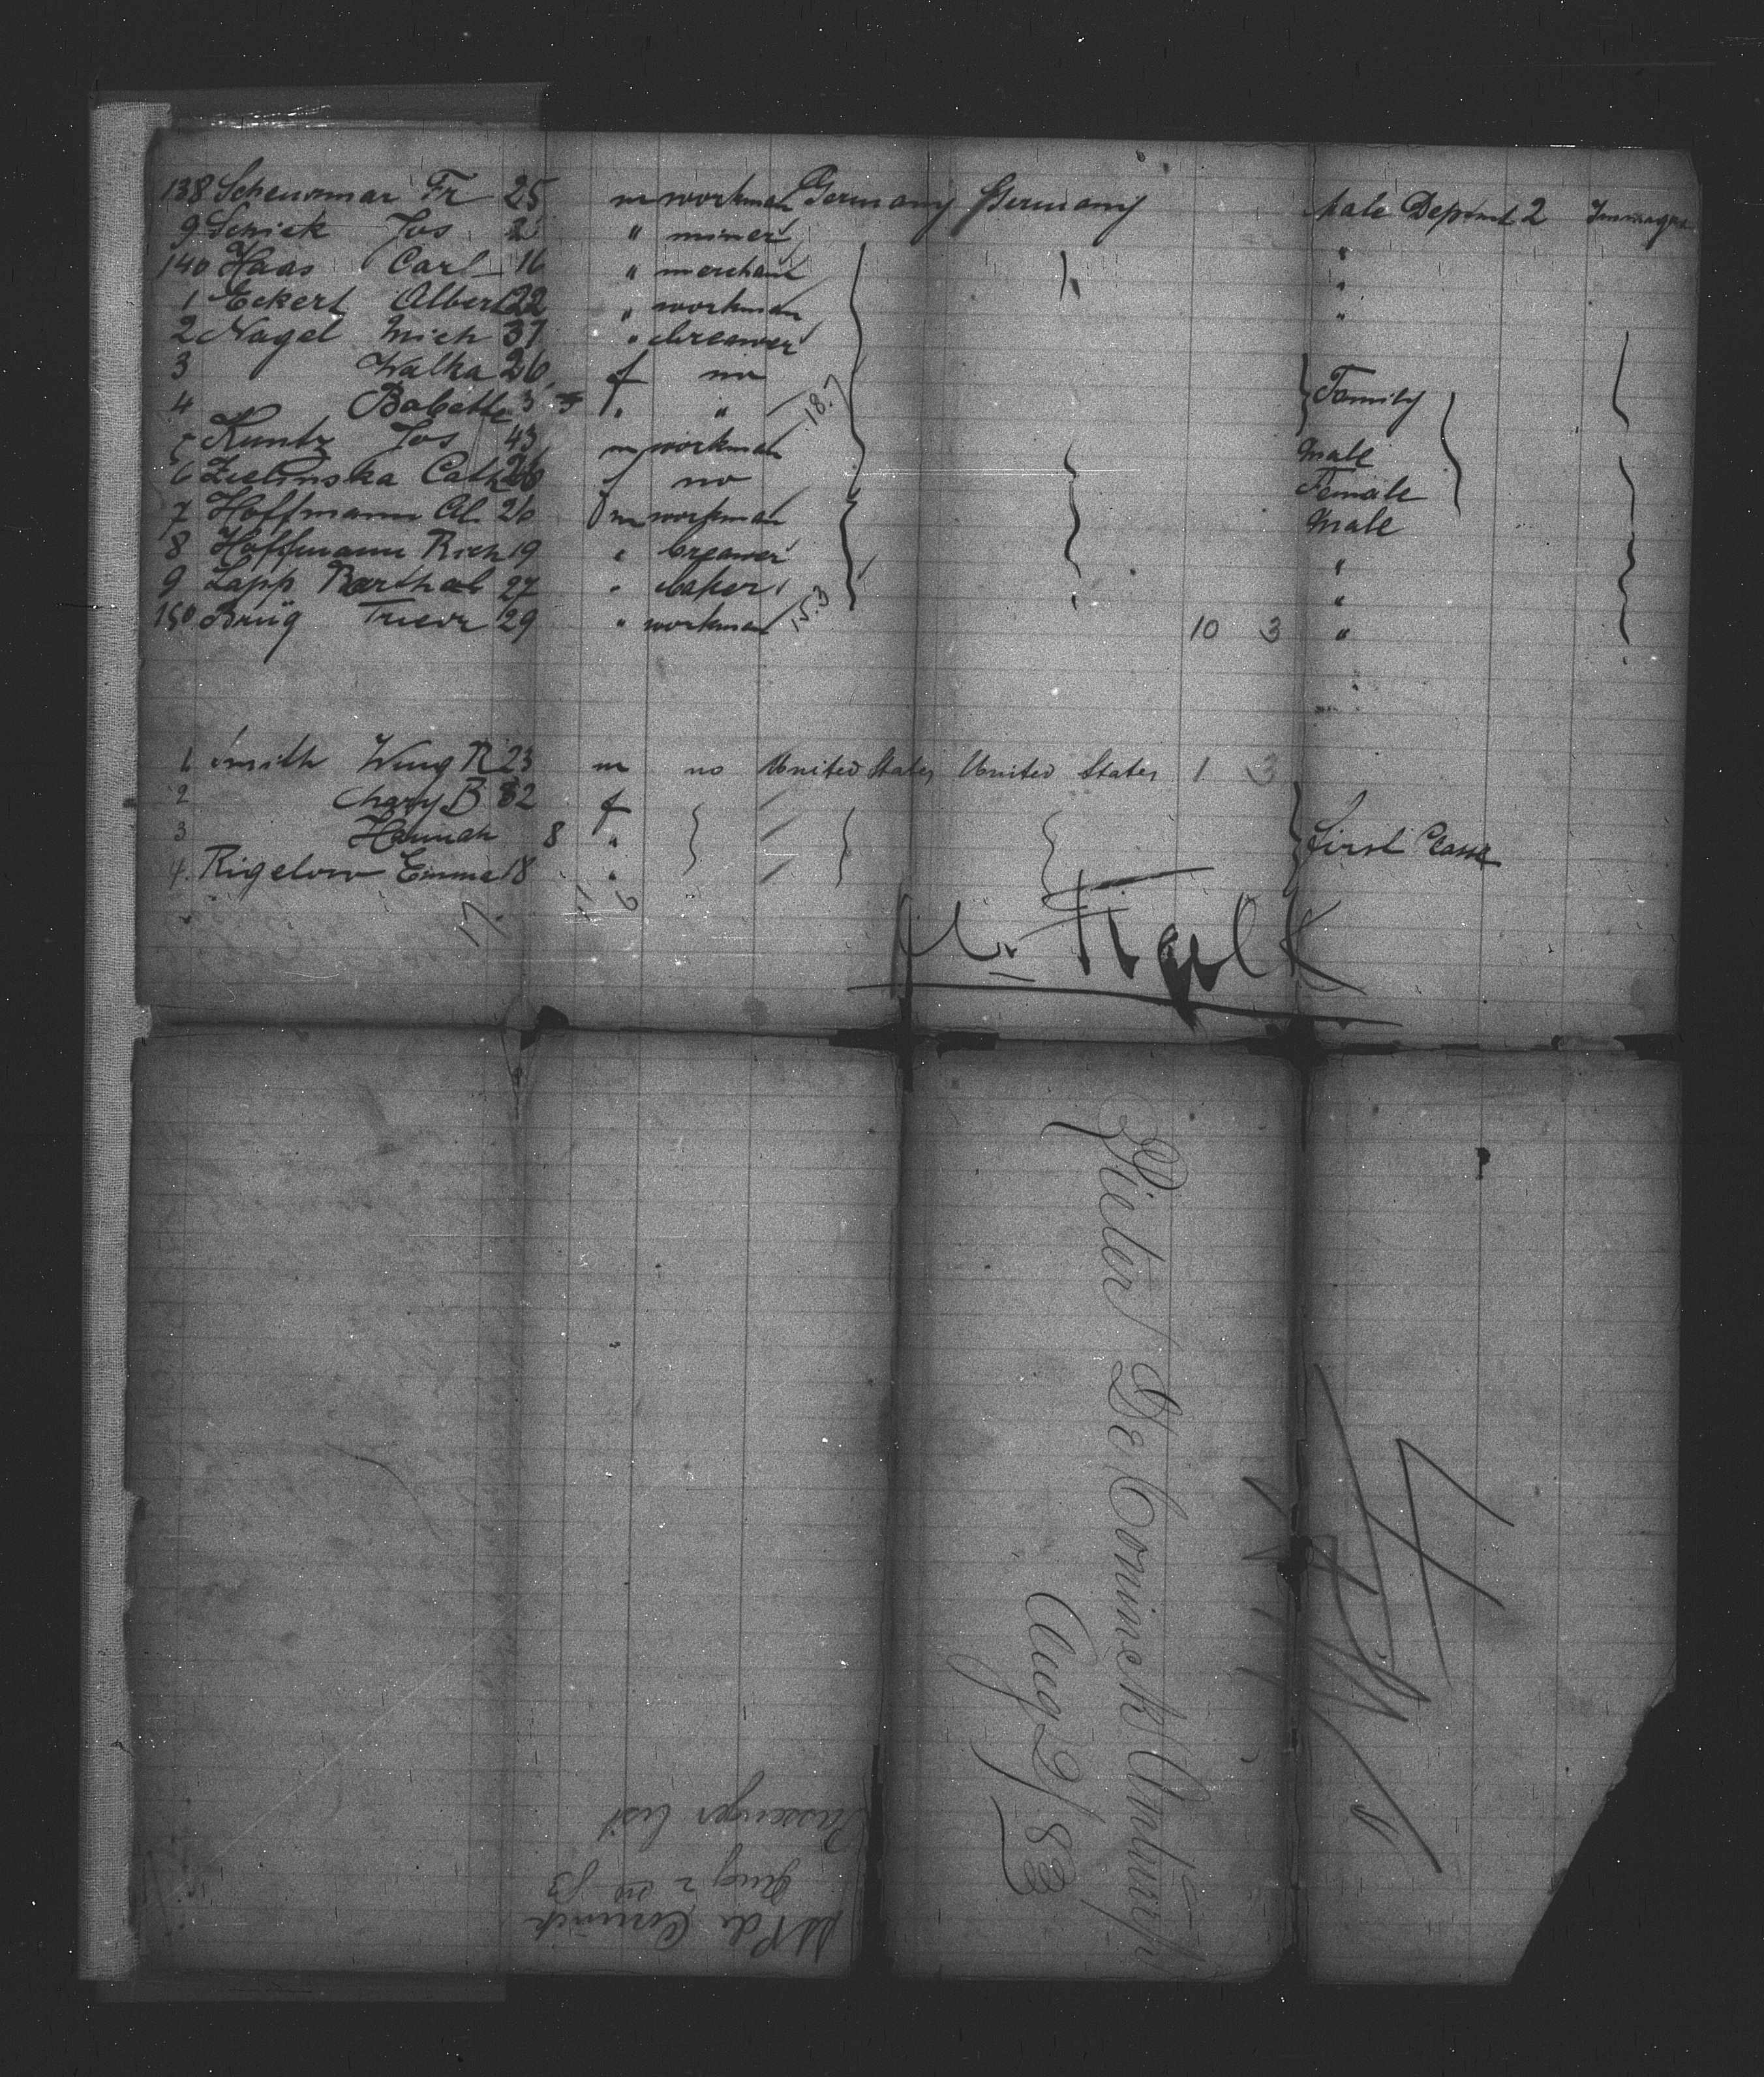 138 Scheuvmar Fr 25 m workman Germany Germany Male Depmt 2 Immigr
9 Schick Jos 2 " miner "
140 Haas Carl 16 " merchant "
1 Eckert Albert 22 " workman "
2 Nagel Mich 37 " breawer
3 Walka 26 f no Family
4 Babette 3 " "
5 Kuntz Jos 43 m workman Male
6 Zielinska Cath 26 f no Female
7 Hoffmann Al. 26 m workman Male
8 Hoffmann Rich 19 " breawer "
9 Lapp Barthol 27 " baker "
150 Brüg Trieve 29 " workman 10 3 "
18.7
15.3
1 Smith Wing R 23 m no United States United States 1 3
2 Mary B 32 f
3 Hannah 8 " First Class
4. Rigelow Emma 18 "
17.
11 6
Pieter De Coninck Antwerp
Aug 2/83
SS P de Coninck
Aug 2nd 83
Passenger List